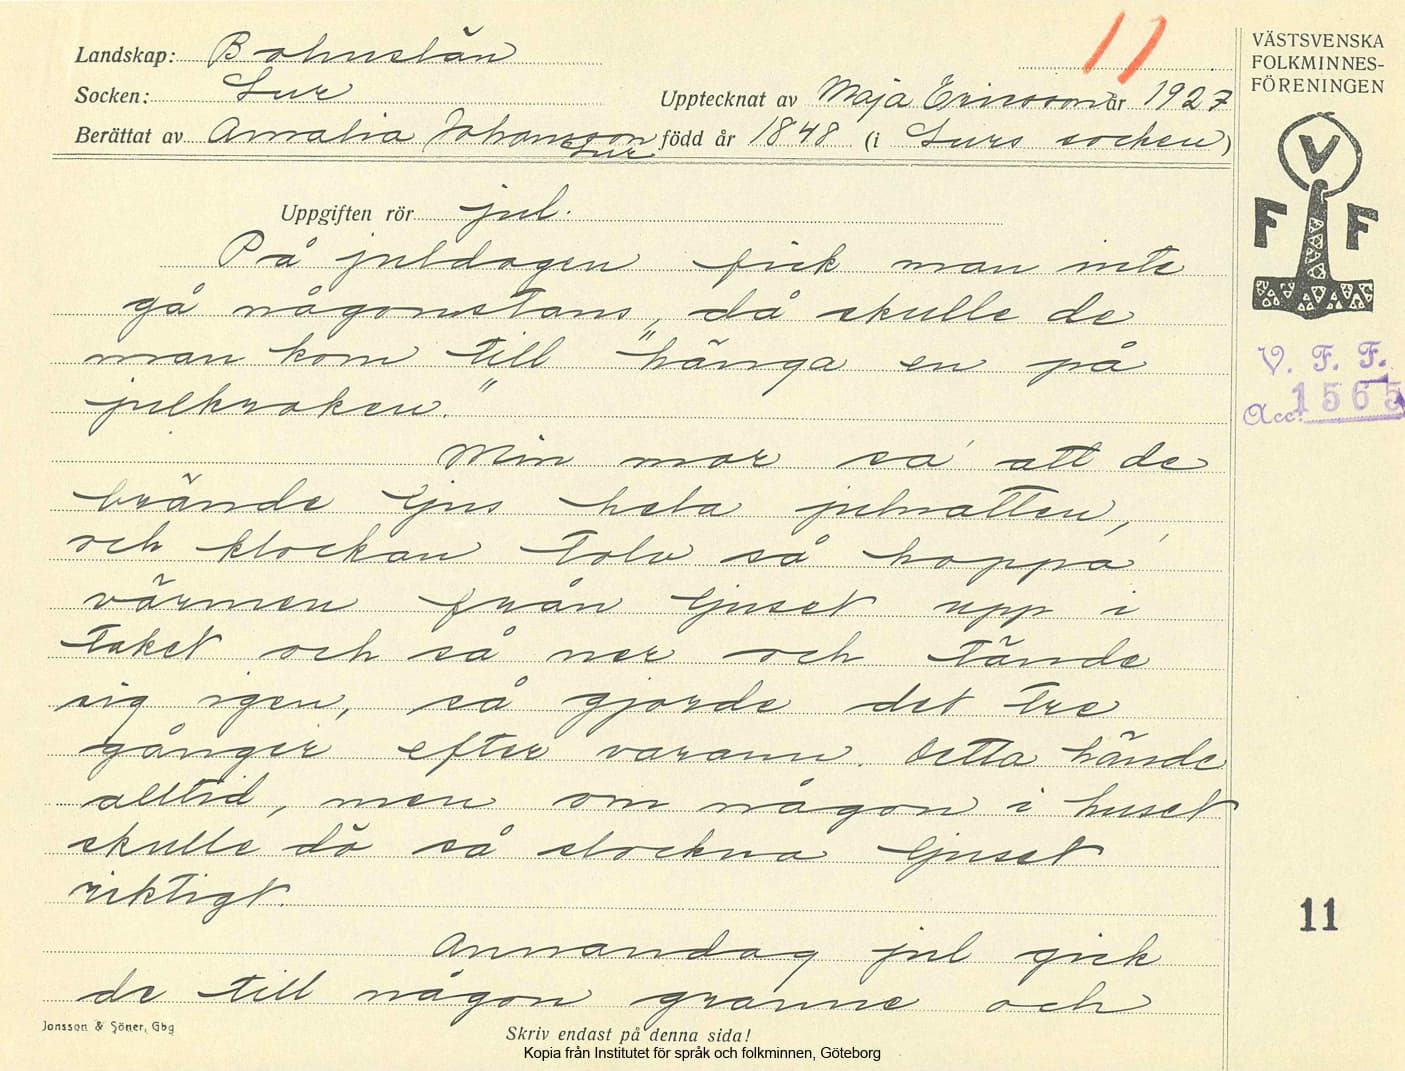 11
Landskap: Bohuslän
Socken: Lur
Upptecknat av Maja Ericsson år 1927
Berättat av Amalia Johansson Lur född år 1848 (i Lurs socken)
VÄSTSVENSKA
FOLKMINNES-
FÖRENINGEN
V
F F
V. F. F.
Acc. 1565
Uppgiften rör jul.
På juldagen fick man inte
gå någonstans, då skulle de
man kom till "hänga en på
julkroken."
Min mor sa' att de
brände ljus hela julnatten,
och klockan tolv så hoppa'
värmen från ljuset upp i
taket och så ner och tände
sig igen, så gjorde det tre
gånger efter varann. Detta hände
alltid, men om någon i huset
skulle dö så slockna ljuset
riktigt.
11
Annandag jul gick
de till någon granne och
Jonsson & Söner, Gbg
Skriv endast på denna sida!
Kopia från Institutet för språk och folkminnen, Göteborg